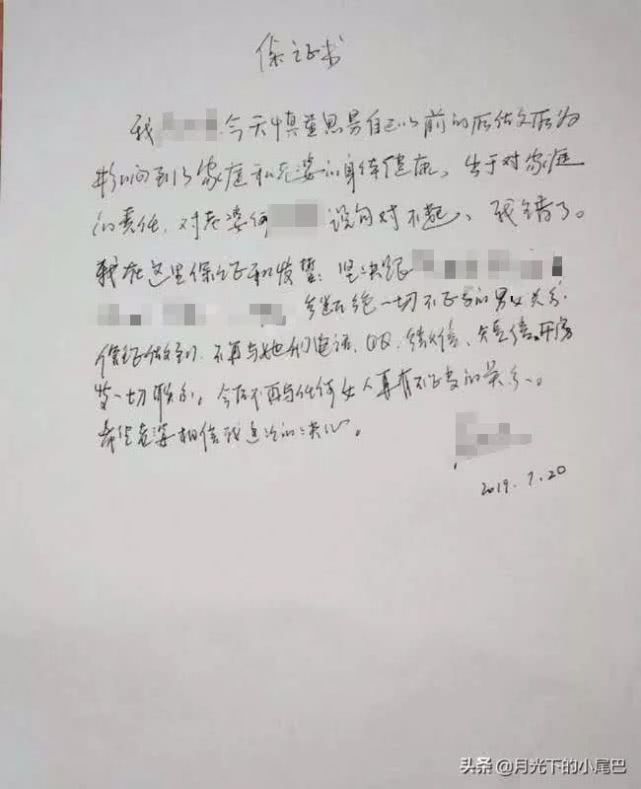 保证书
我 今天慎重思考自己以前的所做所为
影响到了家庭和老婆的身体健康。出于对家庭
的责任，对老婆 说句对不起、我错了。
我在这里保证和发誓：坚决
断绝一切不正当的男女关系。
保证做到不再与她们电话、QQ、微信、短信、开房
等一切联系。今后不再与任何女人再有不正当的关系。
希望老婆相信我这次的决心。
2019.7.20
头条 @月光下的小尾巴